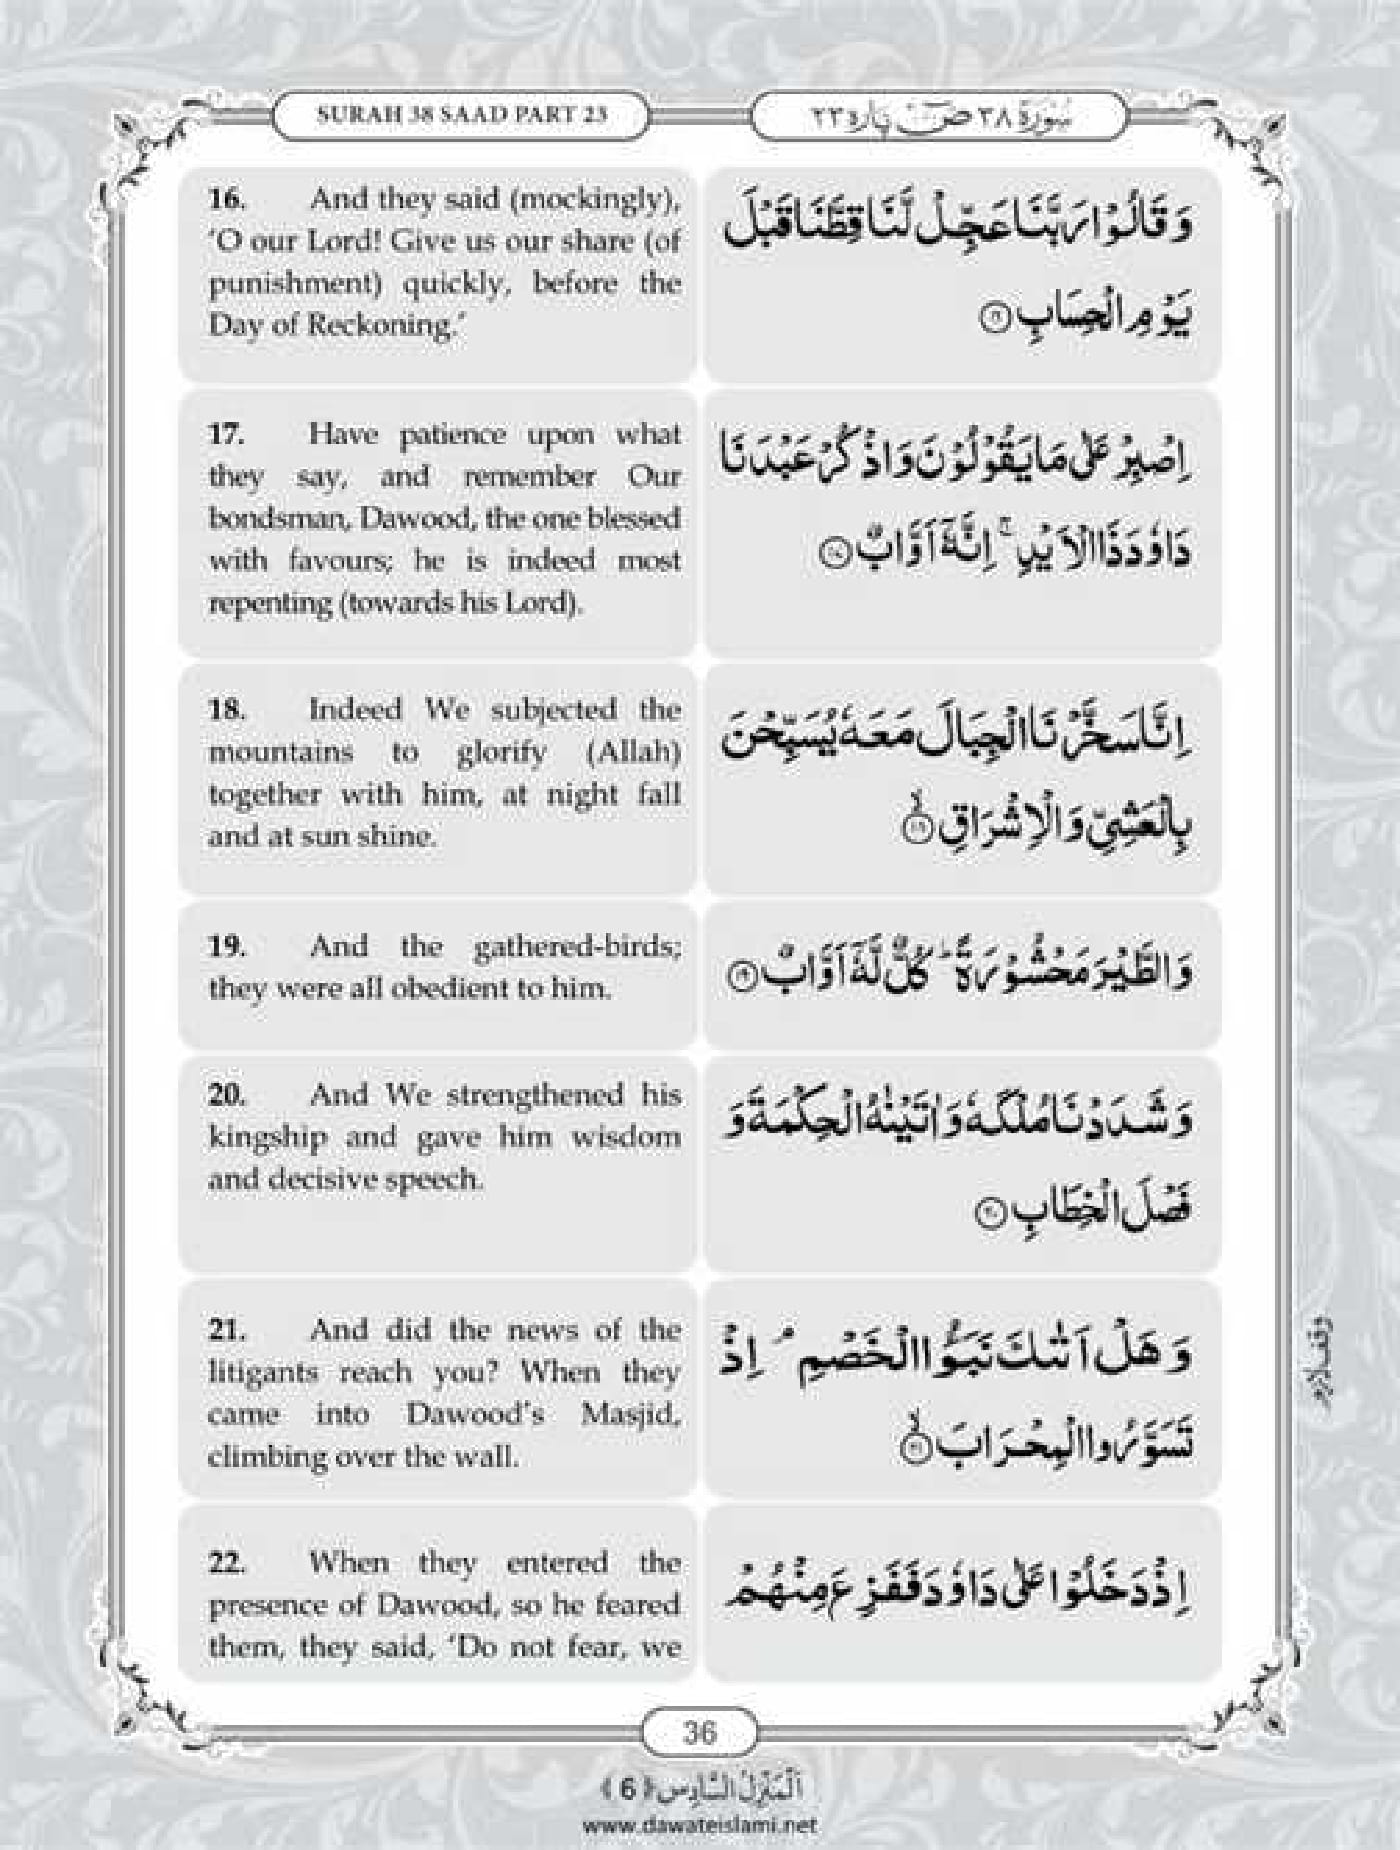 SURAH 38 SAAD PART 23
سُوْرَةُ ٣٨ صٓ پارہ ٢٣
16. And they said (mockingly),
‘O our Lord! Give us our share (of
punishment) quickly, before the
Day of Reckoning.’
وَ قَالُوْا رَبَّنَا عَجِّلْ لَّنَا قِطَّنَا قَبْلَ
يَوْمِ الْحِسَابِ ﴿۱۶﴾
17. Have patience upon what
they say, and remember Our
bondsman, Dawood, the one blessed
with favours; he is indeed most
repenting (towards his Lord).
اِصْبِرْ عَلٰى مَا يَقُوْلُوْنَ وَ اذْكُرْ عَبْدَنَا
دَاوٗدَ ذَا الْاَيْدِ ۚ اِنَّهٗۤ اَوَّابٌ ﴿۱۷﴾
18. Indeed We subjected the
mountains to glorify (Allah)
together with him, at night fall
and at sun shine.
اِنَّا سَخَّرْنَا الْجِبَالَ مَعَهٗ يُسَبِّحْنَ
بِالْعَشِيِّ وَ الْاِشْرَاقِ ﴿ۙ۱۸﴾
19. And the gathered-birds;
they were all obedient to him.
وَ الطَّيْرَ مَحْشُوْرَةً ؕ كُلٌّ لَّهٗۤ اَوَّابٌ ﴿۱۹﴾
20. And We strengthened his
kingship and gave him wisdom
and decisive speech.
وَ شَدَدْنَا مُلْكَهٗ وَ اٰتَيْنٰهُ الْحِكْمَةَ وَ
فَصْلَ الْخِطَابِ ﴿۲۰﴾
21. And did the news of the
litigants reach you? When they
came into Dawood’s Masjid,
climbing over the wall.
وَ هَلْ اَتٰىكَ نَبَؤُا الْخَصْمِ ۘ اِذْ
تَسَوَّرُوا الْمِحْرَابَ ﴿ۙ۲۱﴾
وقف لازم
22. When they entered the
presence of Dawood, so he feared
them, they said, ‘Do not fear, we
اِذْ دَخَلُوْا عَلٰى دَاوٗدَ فَفَزِعَ مِنْهُمْ
36
اَلْمَنْزِلُ السَّادِس ﴿6﴾
www.dawateislami.net